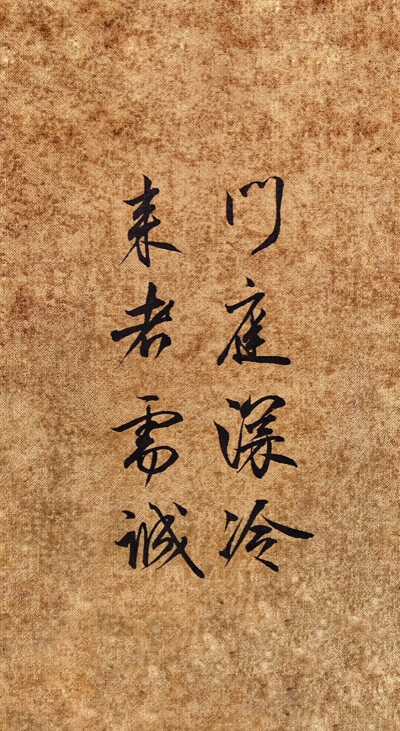 門庭深冷
来者需诚